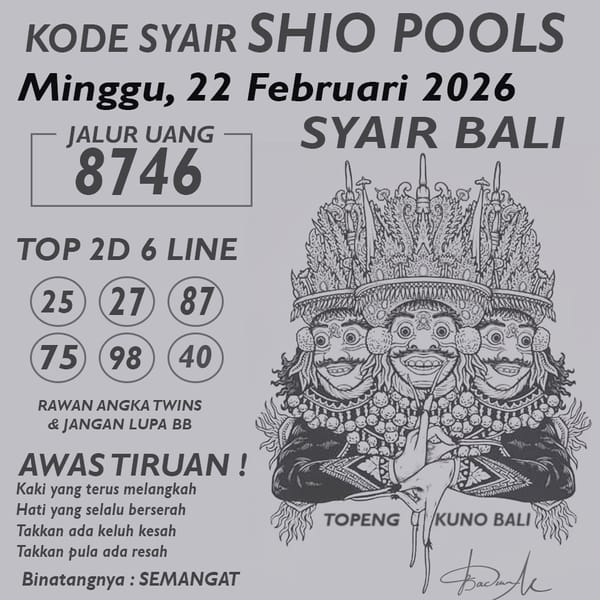 KODE SYAIR SHIO POOLS
Minggu, 22 Februari 2026
SYAIR BALI
JALUR UANG
8746
TOP 2D 6 LINE
25 27 87
75 98 40
RAWAN ANGKA TWINS
& JANGAN LUPA BB
AWAS TIRUAN !
Kaki yang terus melangkah
Hati yang selalu berserah
Takkan ada keluh kesah
Takkan pula ada resah
Binatangnya : SEMANGAT
TOPENG KUNO BALI